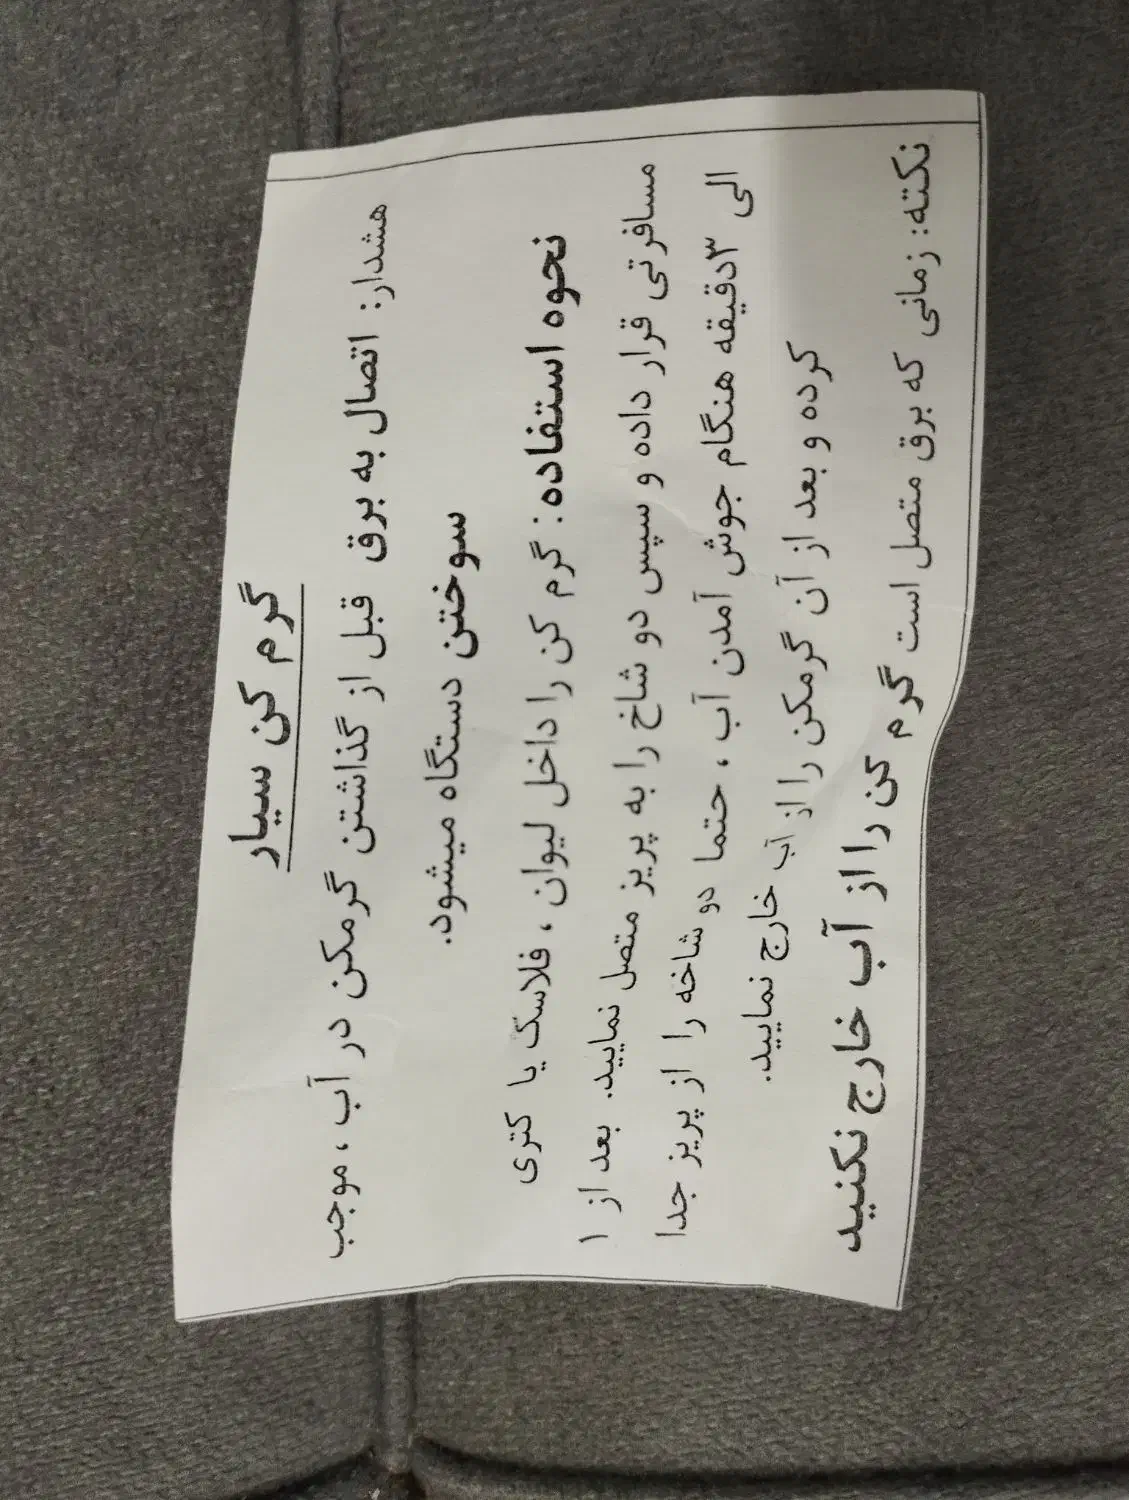 گرم کن سیار
هشدار: اتصال به برق قبل از گذاشتن گرمکن در آب ، موجب
سوختن دستگاه میشود.
نحوه استفاده: گرم کن را داخل لیوان ، فلاسک یا کتری
مسافرتی قرار داده و سپس دو شاخ را به پریز متصل نمایید. بعد از ۱
الی ۳دقیقه هنگام جوش آمدن آب ، حتما دو شاخه را از پریز جدا
کرده و بعد از آن گرمکن را از آب خارج نمایید.
نکته: زمانی که برق متصل است گرم کن را از آب خارج نکنید